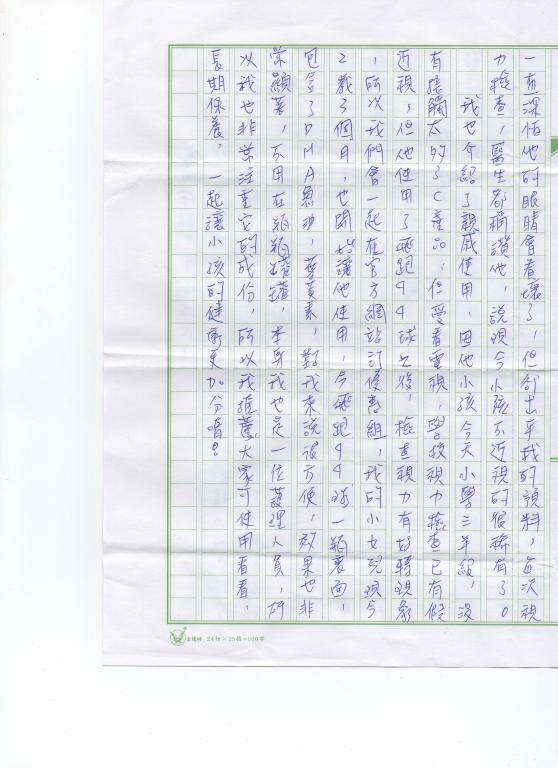 一直深怕他的眼睛會看壞了,但卻出乎我的預料,每次視
力檢查,醫生都稱讚他,說現今小孩不近視的很稀有了。
我也介紹了親戚使用,因他小孩今天小學三年級,沒
有接觸太多的3C產品,但愛看電視,學校視力檢查已有假
近視,但他使用了飛跑44球之後,檢查視力有好轉現象
,所以我們會一起在官方網站訂優惠組,我的小女兒現今
2歲3個月,也開始讓他使用,今飛跑44球一瓶裏面,
包含了DHA魚油,葉黃素,對我來說很方便,效果也非
常顯著,不用在瓶瓶罐罐,本身我也是一位護理人員,所
以我也非常注重它的成份,所以我推薦大家可使用看看,
長期保養,一起讓小孩的健康更加分唷!
24行×25格=600字